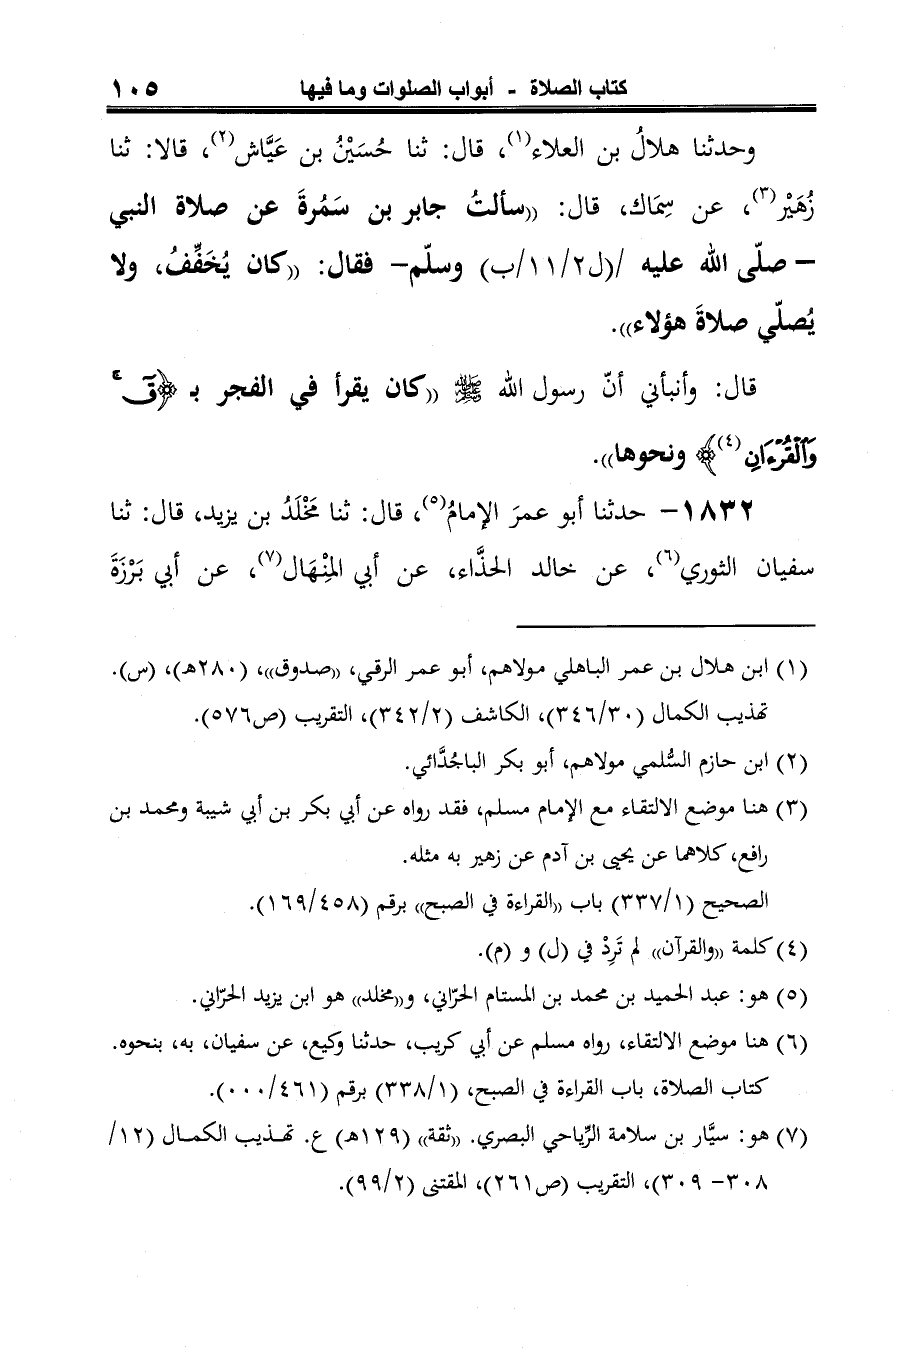 كتاب الصلاة - أبواب الصلوات وما فيها ١٠٥
وحدثنا هلالُ بن العلاء(١)، قال: ثنا حُسَيْنُ بن عَيَّاش(٢)، قالا: ثنا
زُهَيْر(٣)، عن سِمَاك، قال: ((سألتُ جابر بن سَمُرةَ عن صلاة النبي
– صلّى الله عليه /(ل٢/١١/ب) وسلّم– فقال: ((كان يُخَفِّفُ، ولا
يُصلّي صلاةَ هؤلاء)).
قال: وأنبأني أنّ رسول الله ﷺ ((كان يقرأ في الفجر بـ ﴿قٓ ۚ
وَٱلْقُرْءَانِ(٤)﴾ ونحوها)).
١٨٣٢– حدثنا أبو عمرَ الإمامُ(٥)، قال: ثنا مَخْلَدُ بن يزيد، قال: ثنا
سفيان الثوري(٦)، عن خالد الحذَّاء، عن أبي المِنْهَال(٧)، عن أبي بَرْزَةَ
(١) ابن هلال بن عمر الباهلي مولاهم، أبو عمر الرقي، ((صدوق))، (٢٨٠هـ)، (س).
تهذيب الكمال (٣٤٦/٣٠)، الكاشف (٣٤٢/٢)، التقريب (ص٥٧٦).
(٢) ابن حازم السُّلمي مولاهم، أبو بكر الباجُدَّائي.
(٣) هنا موضع الالتقاء مع الإمام مسلم، فقد رواه عن أبي بكر بن أبي شيبة ومحمد بن
رافع، كلاهما عن يحيى بن آدم عن زهير به مثله.
الصحيح (٣٣٧/١) باب ((القراءة في الصبح)) برقم (١٦٩/٤٥٨).
(٤) كلمة ((والقرآن)) لم تَرِدْ في (ل) و (م).
(٥) هو: عبد الحميد بن محمد بن المستام الحرّاني، و((مخلد)) هو ابن يزيد الحرّاني.
(٦) هنا موضع الالتقاء، رواه مسلم عن أبي كريب، حدثنا وكيع، عن سفيان، به، بنحوه.
كتاب الصلاة، باب القراءة في الصبح، (٣٣٨/١) برقم (٠٠٠/٤٦١).
(٧) هو: سيَّار بن سلامة الرِّياحي البصري. ((ثقة)) (١٢٩هـ) ع. تهذيب الكمال (١٢/
٣٠٨– ٣٠٩)، التقريب (ص٢٦١)، المقتنى (٩٩/٢).